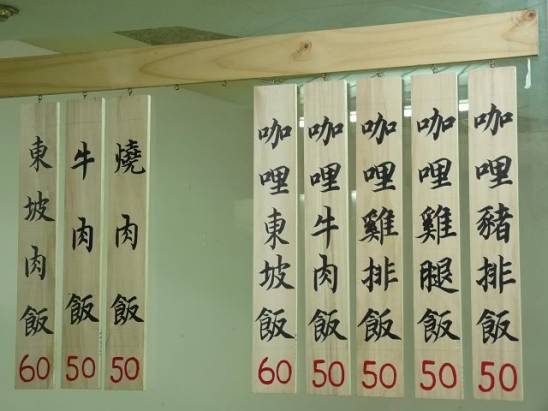 咖哩豬排飯 50
咖哩雞腿飯 50
咖哩雞排飯 50
咖哩牛肉飯 50
咖哩東坡飯 60
燒肉飯 50
牛肉飯 50
東坡肉飯 60